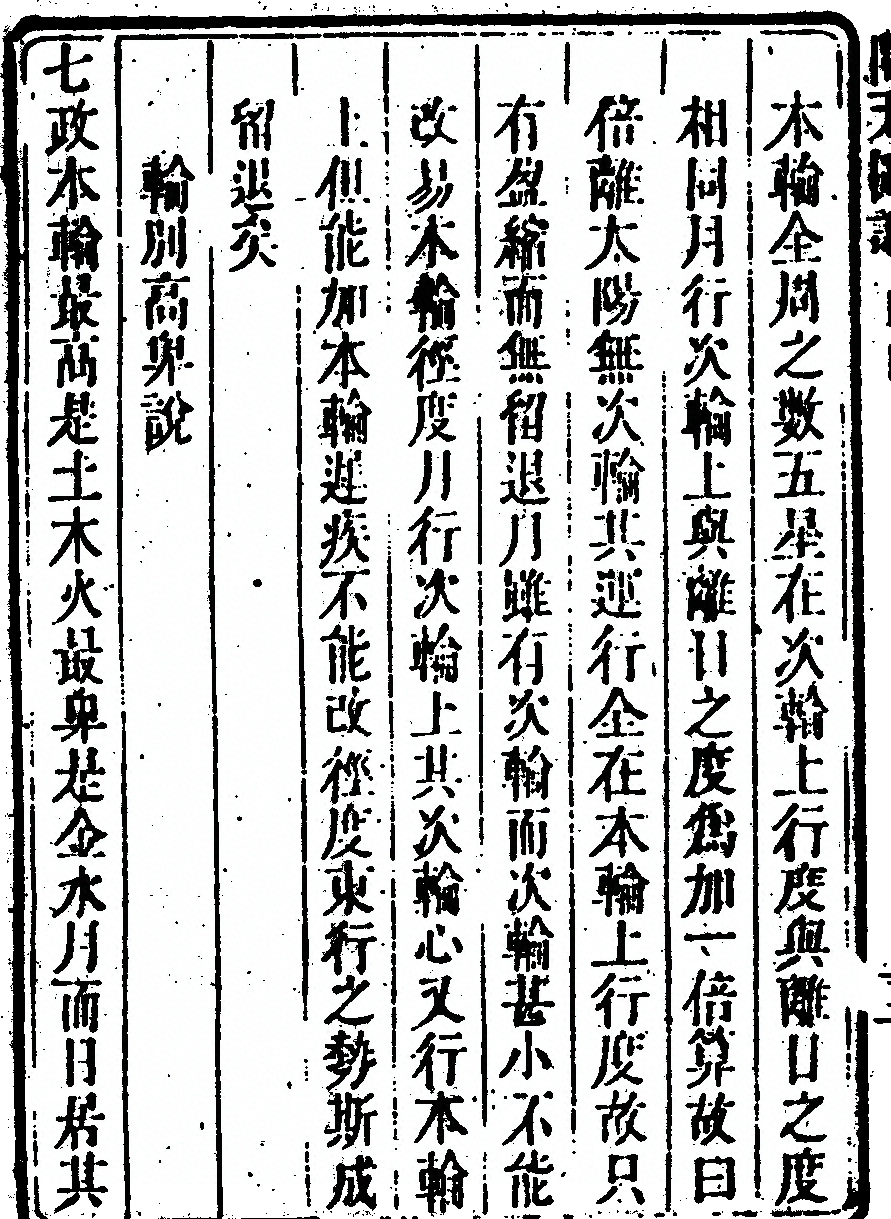 本輪全周之數五星在次輪上行度與離日之度
相同月行次輪上與離日之度爲加一倍算故曰
倍離太陽無次輪其運行全在本輪上行度故只
有盈縮而無留退月雖有次輪而次輪甚小不能
改易本輪徑度月行次輪上其次輪心又行本輪
上但能加本輪遲疾不能改徑度東行之勢斯成
留退矣
輪別高卑說
七政本輪最高是土木火最卑是金水月而日居其